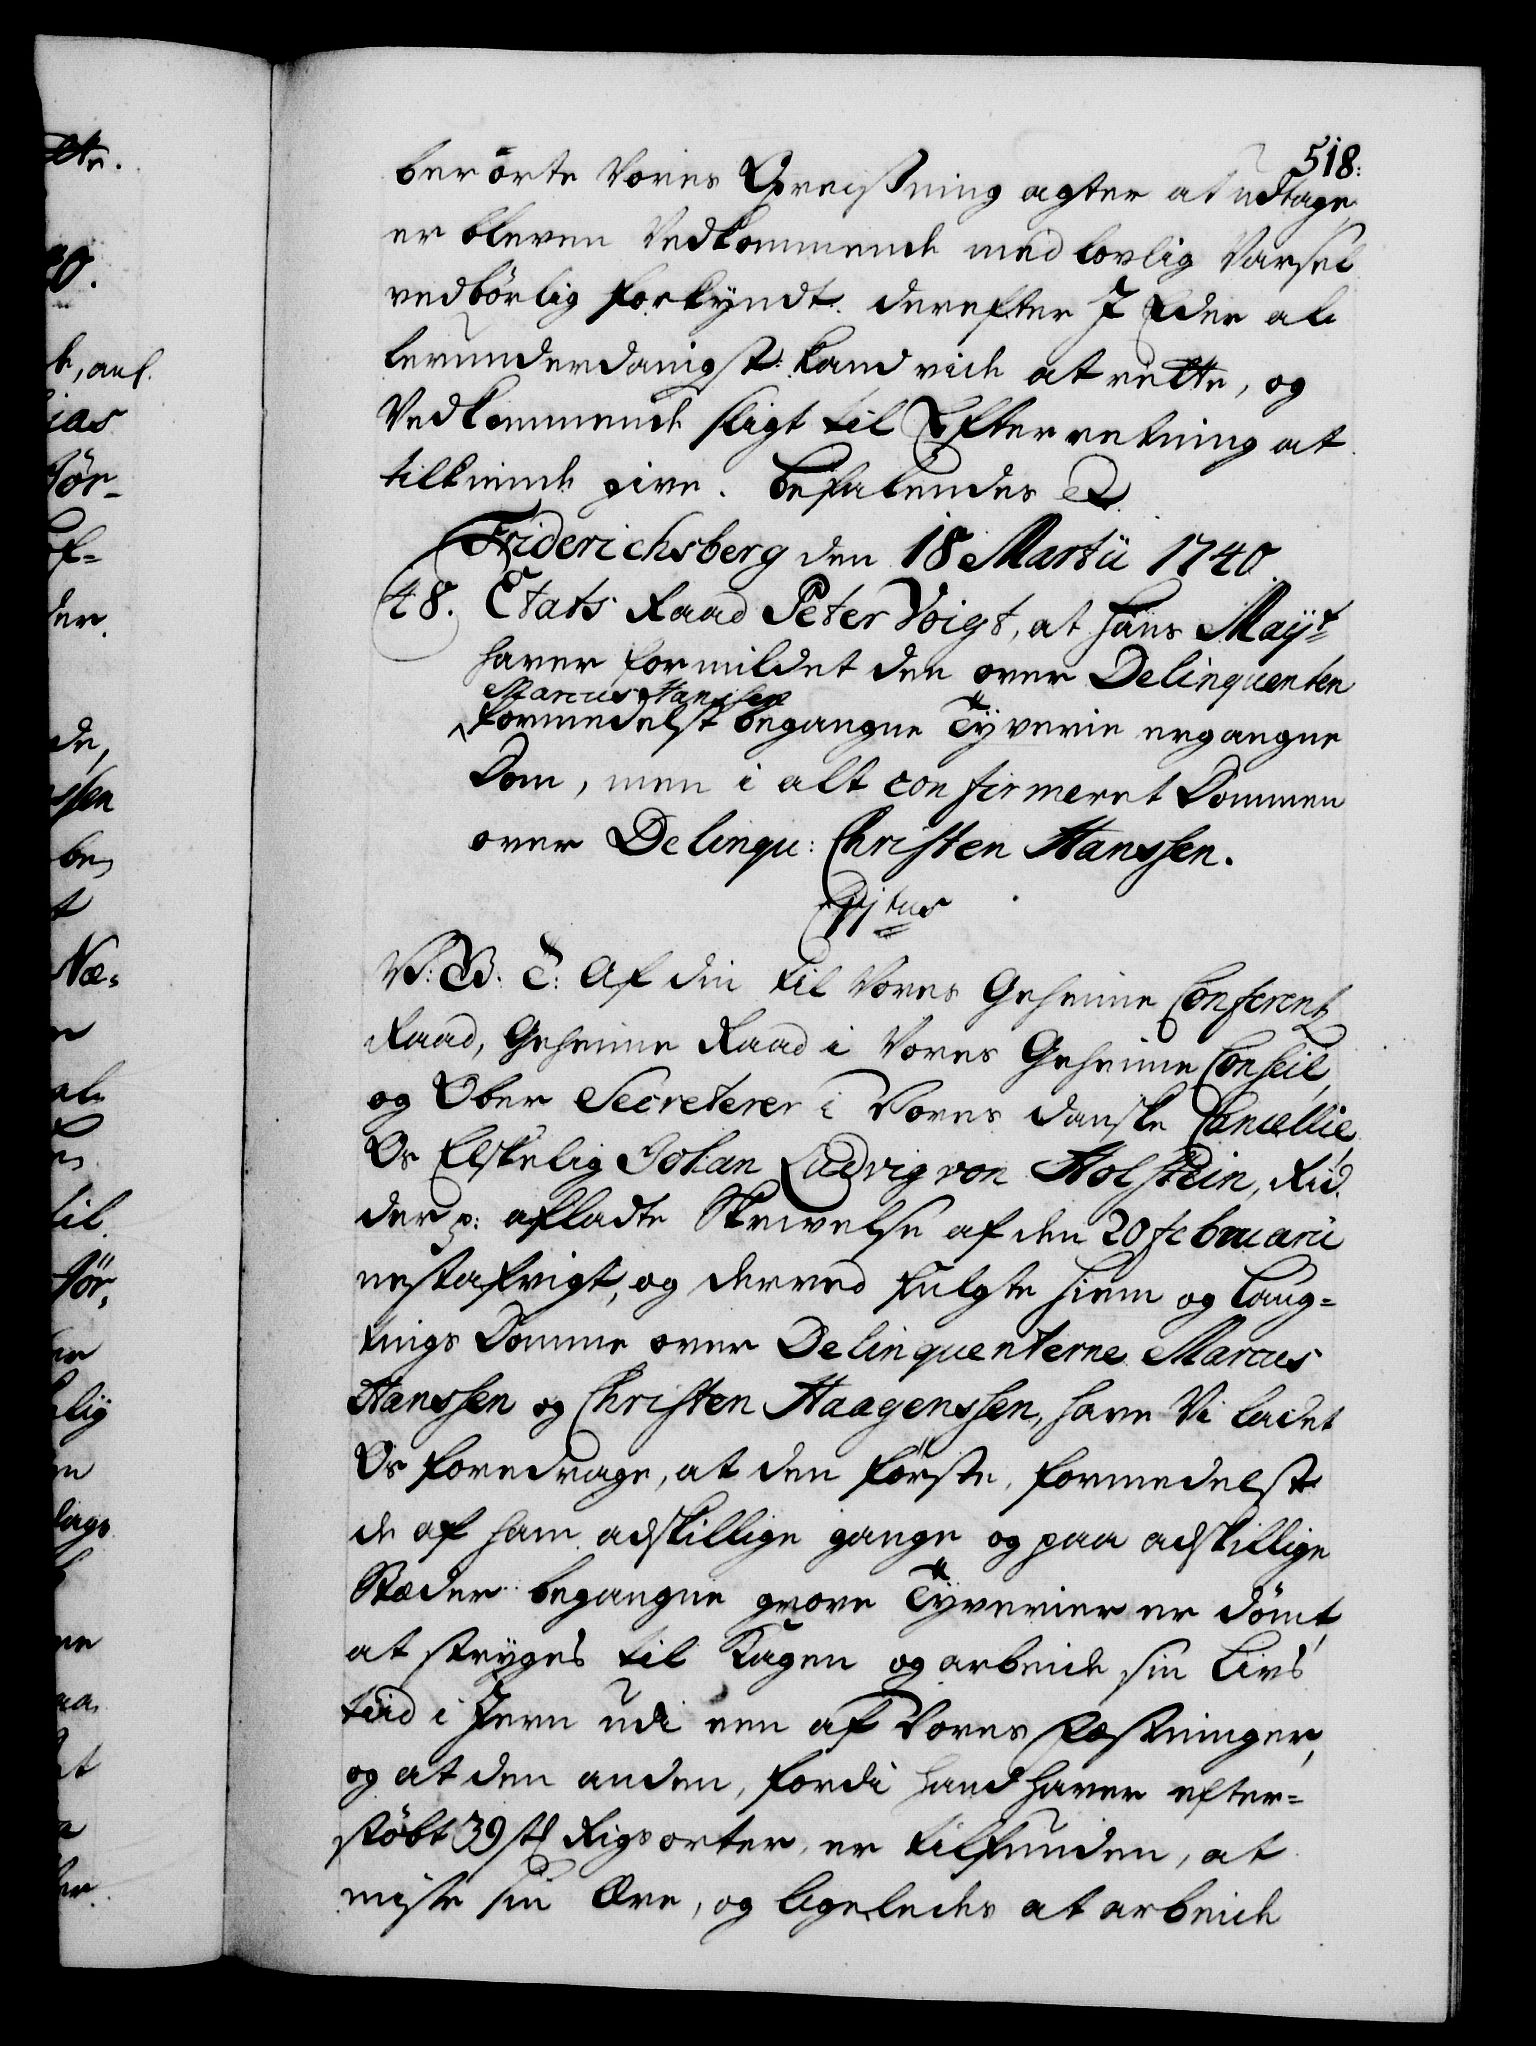 518:
berørte Vores Opreisning agter at udtage,
er bleven Vedkommende med lovlig Varsel
vedbørlig forkyndt. derefter I Eder al
lerunderdanigst kand vide at rette, og
Vedkommende sligt til Efterretning at
tilkiende give. Befalendes
Friderichsberg den 18 Martii 1740.
48. Etats Raad Peter Voigt, at Hans Mayt
haver formildet den over Delinquenten
Marcus Hanssen
formedelst begangne Tyverie ergangne
Dom, men i alt confirmeret Dommen
over Delinqu: Christen Hanssen.
C. 6tus
V: G: T: Af din til Vores Geheime Conferentz
Raad, Geheime Raad i Vores Geheime Conseil,
og Ober Secreterer i Vores danske Cancellie,
Os Elskelig Johan Ludvig von Holstein, Rid-
der p: afladte Skrivelse af den 20 Februarii
nestafvigt, og derved fulgte Hiem og Laug-
tings Domme over Delinquenterne Marcus
Hanssen og Christen Haagenssen, have Vi ladet
Os foredrage, at den første, formedelst
de af ham adskillige gange og paa adskillige
Stæder begangne grove Tyverier er dømt,
at stryges til Kagen og arbeide sin Livs
tiid i Jern udi een af Vores Fæstninger,
og at den anden, fordi hand haver efter-
støbt 39 st Rigsorter, er tilfunden, at
miste sin Ære, og ligeledes at arbeide